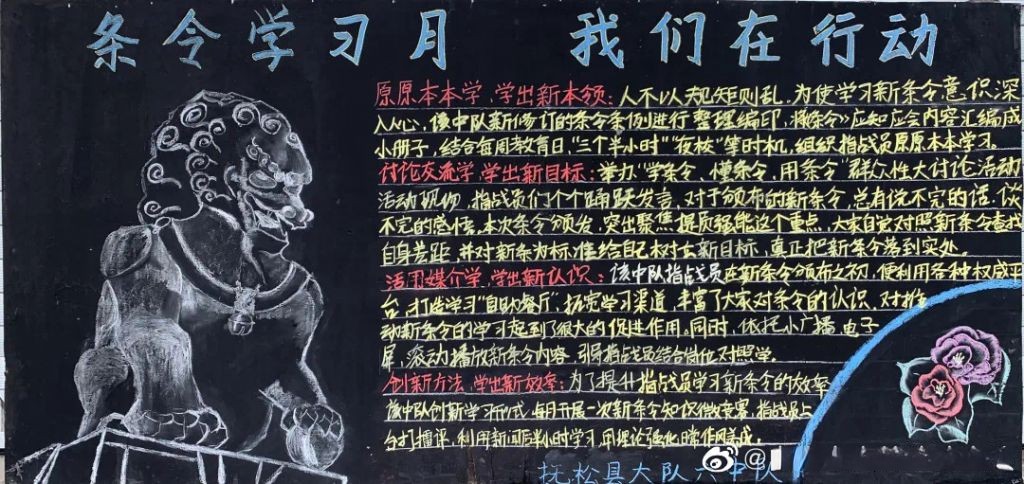 条令学习月 我们在行动
原原本本学,学出新本领:人不以规矩则乱,为使学习新条令意识深
入人心,该中队新修订的条令条例进行整理编印,将条令》应知应会内容汇编成
小册子,结合每周教育日,"三个半小时""夜校"等时机,组织指战员原原本本学习。
讨论交流学,学出新目标:举办"学条令、懂条令、用条令"群众性大讨论活动
活动现场,指战员们个个踊跃发言,对于颁布的新条令,总有说不完的话,谈
不完的感悟,本次条令颁发,突出聚焦提质强能这个重点,大家自觉对照新条令查找
自身差距,并对新条为标准给自己树立新目标,真正把新条令落到实处。
活用媒介学,学出新认识:该中队指战员在新条令颁布之初,便利用各种权威平
台,打造学习"自助餐厅"拓宽学习渠道,丰富了大家对条令的认识,对推
动新条令的学习起到了很大的促进作用,同时,依托小广播,电子
屏,滚动播放新条令内容,引导指战员结合岗位对照学。
创新方法,学出新效率:为了提升指战员学习新条令的效率
该中队创新学习形式,每月开展一次新条令知识微竞赛,指战员上
台打擂评,利用新闻后半小时学习,用理论强化日常作风养成。
抚松县大队六中队
@